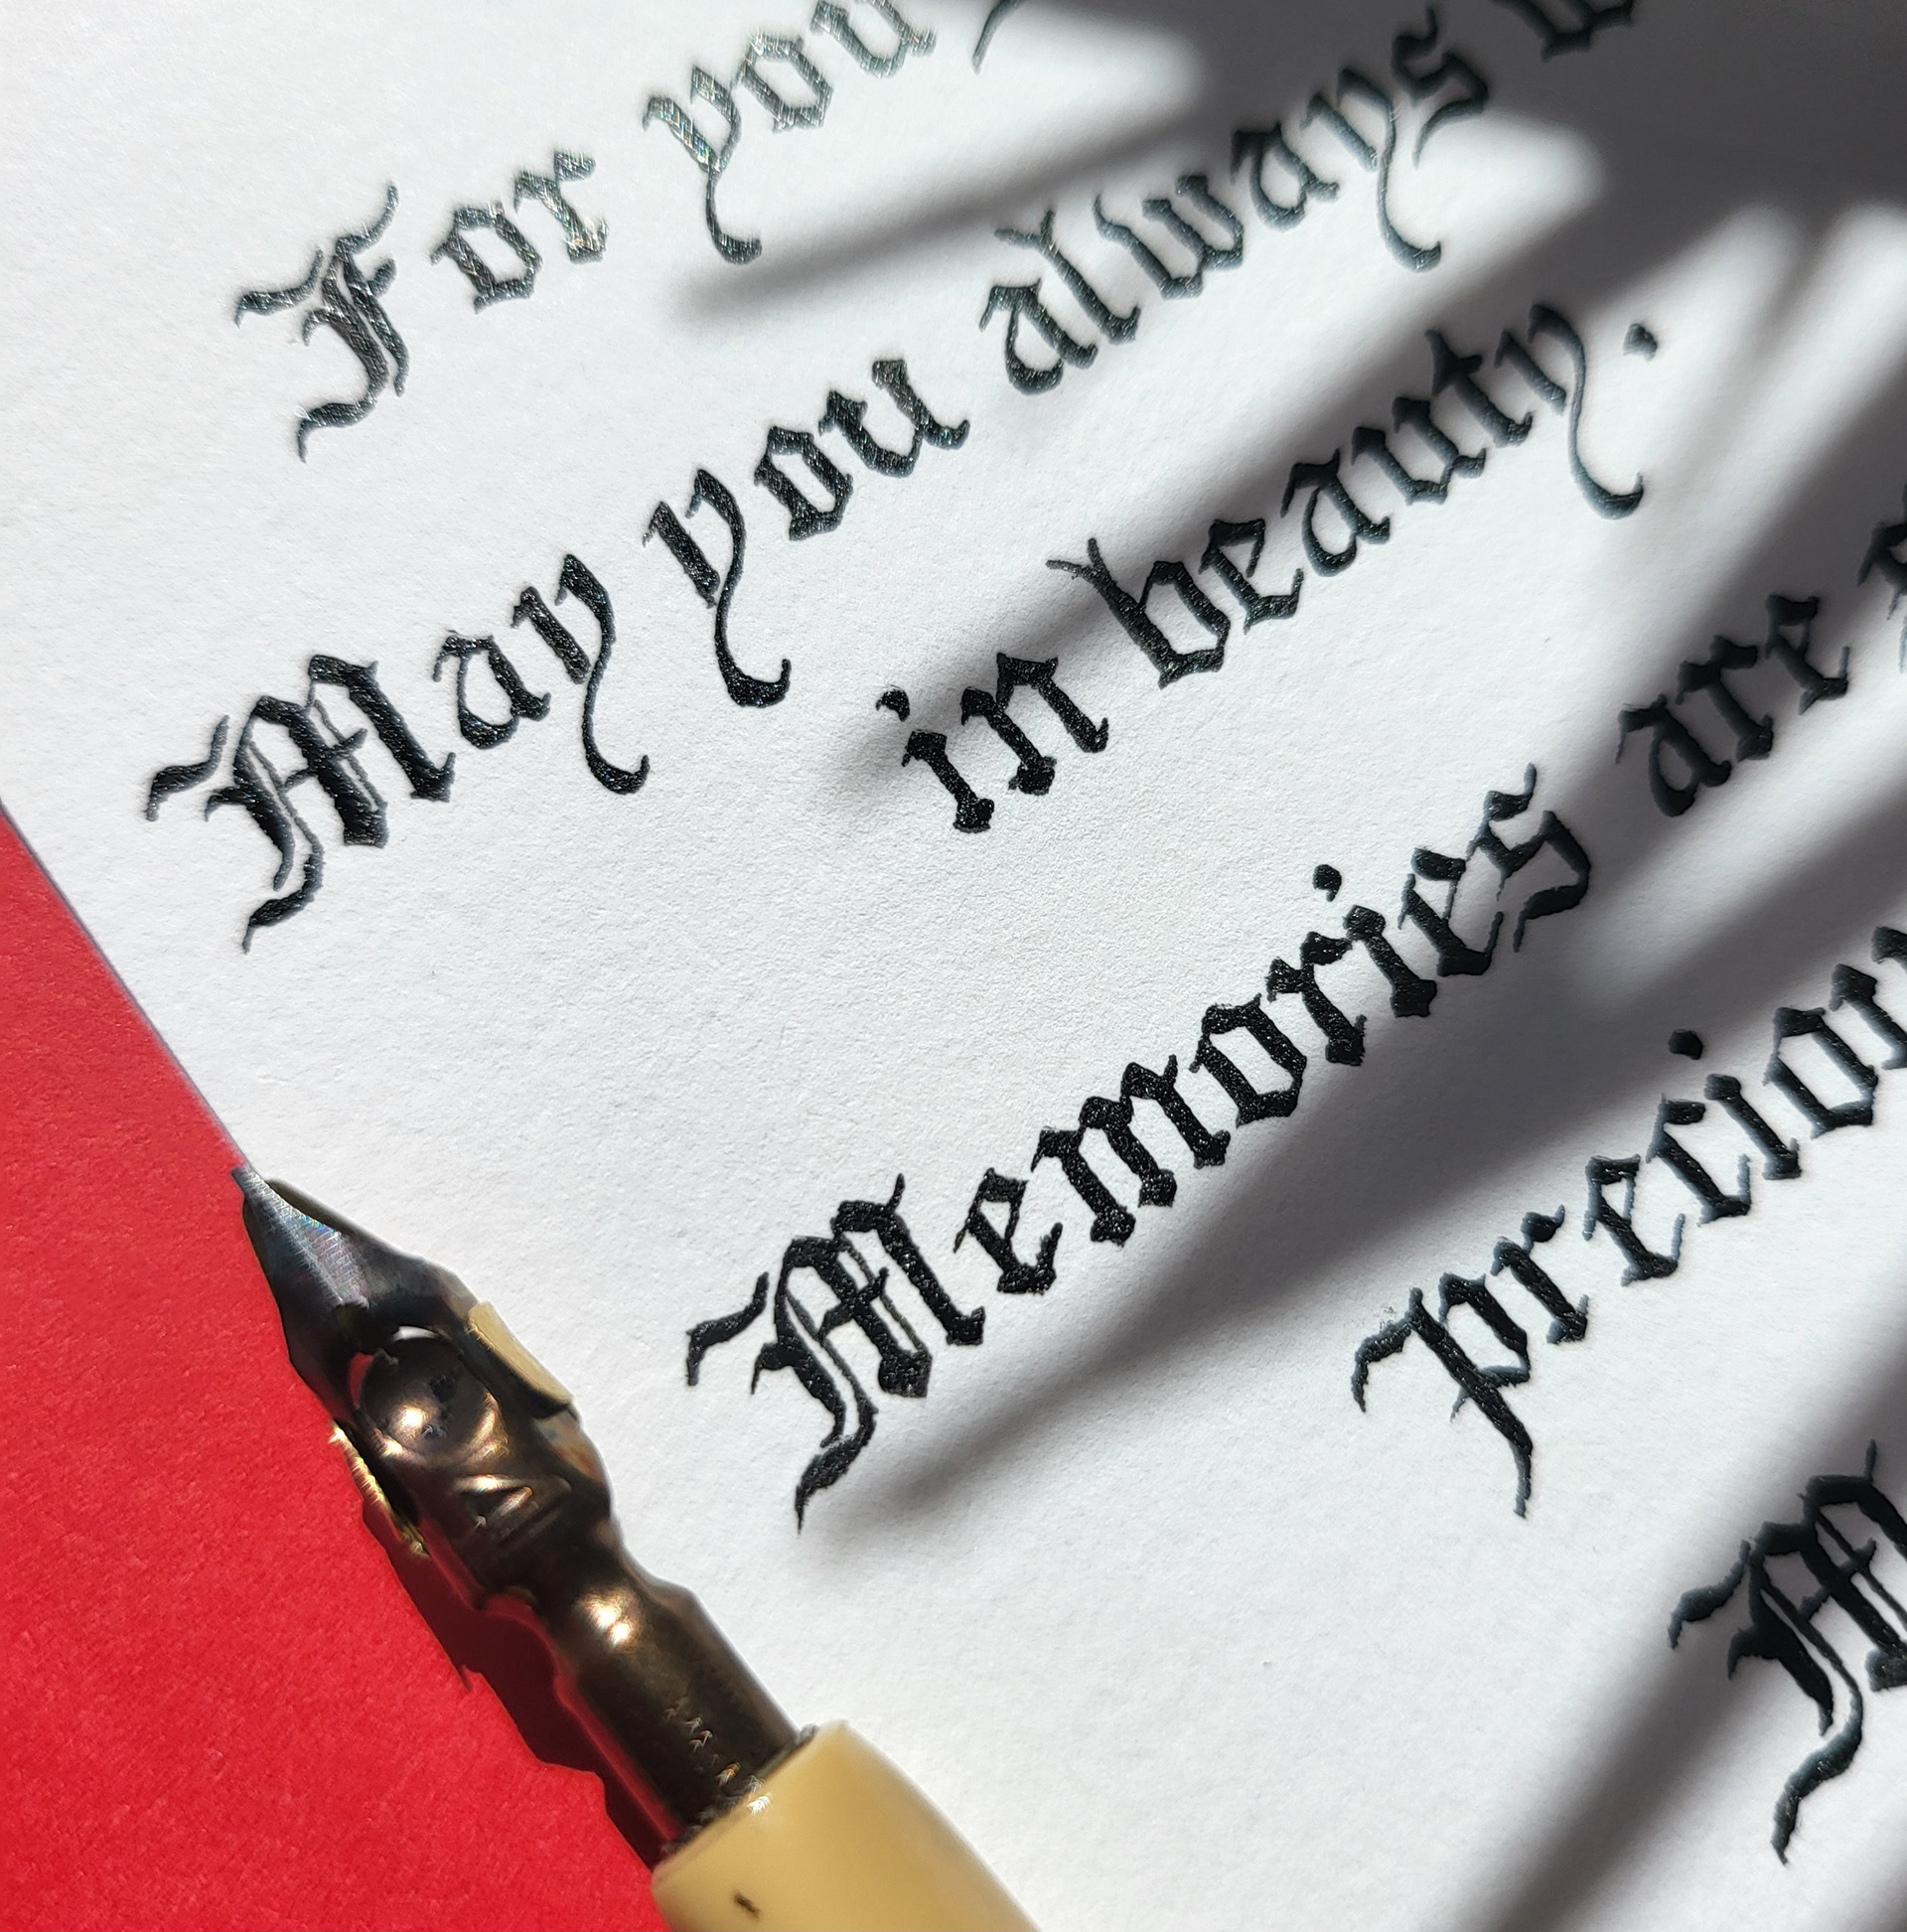 For you
May you always
in beauty.
Memories are